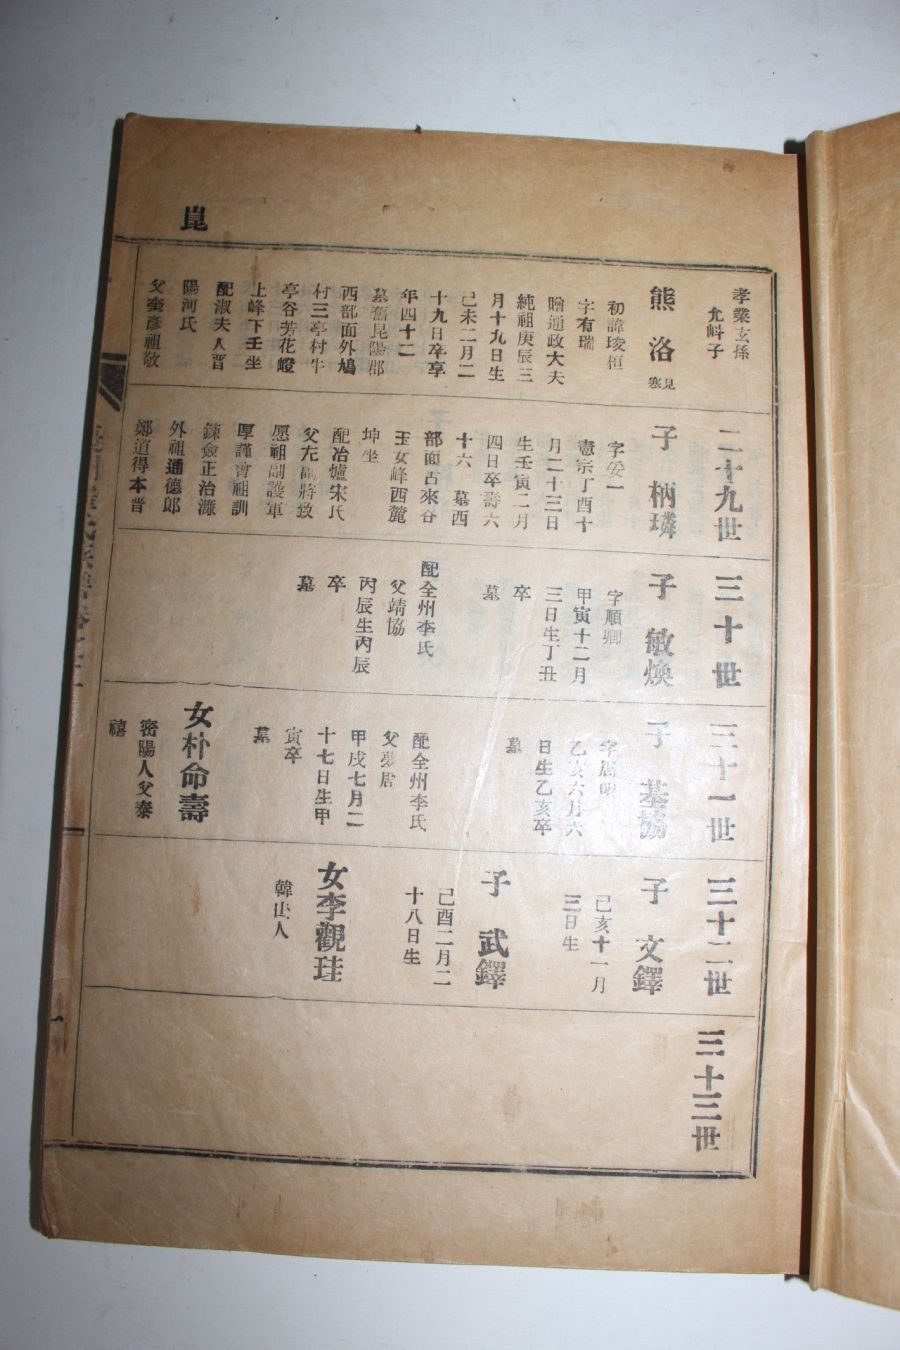 崑
孝業玄孫
允㪷子
熊洛
見
寒
初諱埈桓
字有瑞
贈通政大夫
純祖庚辰三
月十九日生
己未二月二
十九日卒享
年四十二
墓舊昆陽郡
西部面外鳩
村三亭村牛
亭谷芳花嶝
上峰下壬坐
配淑夫人晋
陽河氏
父奎彦祖敬
二十九世
子柄璘
字受一
憲宗丁酉十
月二十三日
生壬寅二月
四日卒壽六
十六 墓西
部面古來谷
玉女峰西麓
坤坐
配冶爐宋氏
父左副將致
愿祖副護軍
厚謹曾祖訓
鍊僉正治濂
外祖通德郎
鄭道得本晋
三十世
子敏煥
字順卿
甲寅十二月
三日生丁丑
卒
墓
配全州李氏
父靖協
丙辰生丙辰
卒
墓
三十一世
子基協
乙亥六月六
日生乙亥卒
墓
配全州李氏
父夢居
甲戌七月二
十七日生甲
寅卒
墓
女朴命壽
密陽人父泰
禧
三十二世
子文鐸
己亥十一月
三日生
子武鐸
己酉二月二
十八日生
女李觀珪
韓山人
三十三世
一